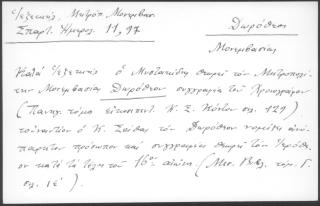 Γεζεκιής, Μητρόπ. Μονεμβασ.
Σπαρτ. Ημερολ. 11, 97
Δωρόθεος
Μονεμβασίας
Κατά Γεζεκιής ὁ Μυστακίδης θεωρεί τὸν Μητροπολί-
την Μονεμβασίας Δωρόθεον συγγραφέα τοῦ Χρονογράφου
(Πανηγ. τόμος εἰκοσιπεντ. Κ. Σ. Κόντου σελ. 129)
τοὐναντίον ὁ Κ. Σάθας τὸν Δωρόθεον νομίζει ἀνύ-
παρκτον πρόσωπον καὶ συγγραφέα θεωρεῖ τὸν Ἱερόθε-
ον κατὰ τὰ τέλη τοῦ 16ου αἰῶνος (Μεσ. Βιβλ. τόμ. Γ.
σελ. ιέ).